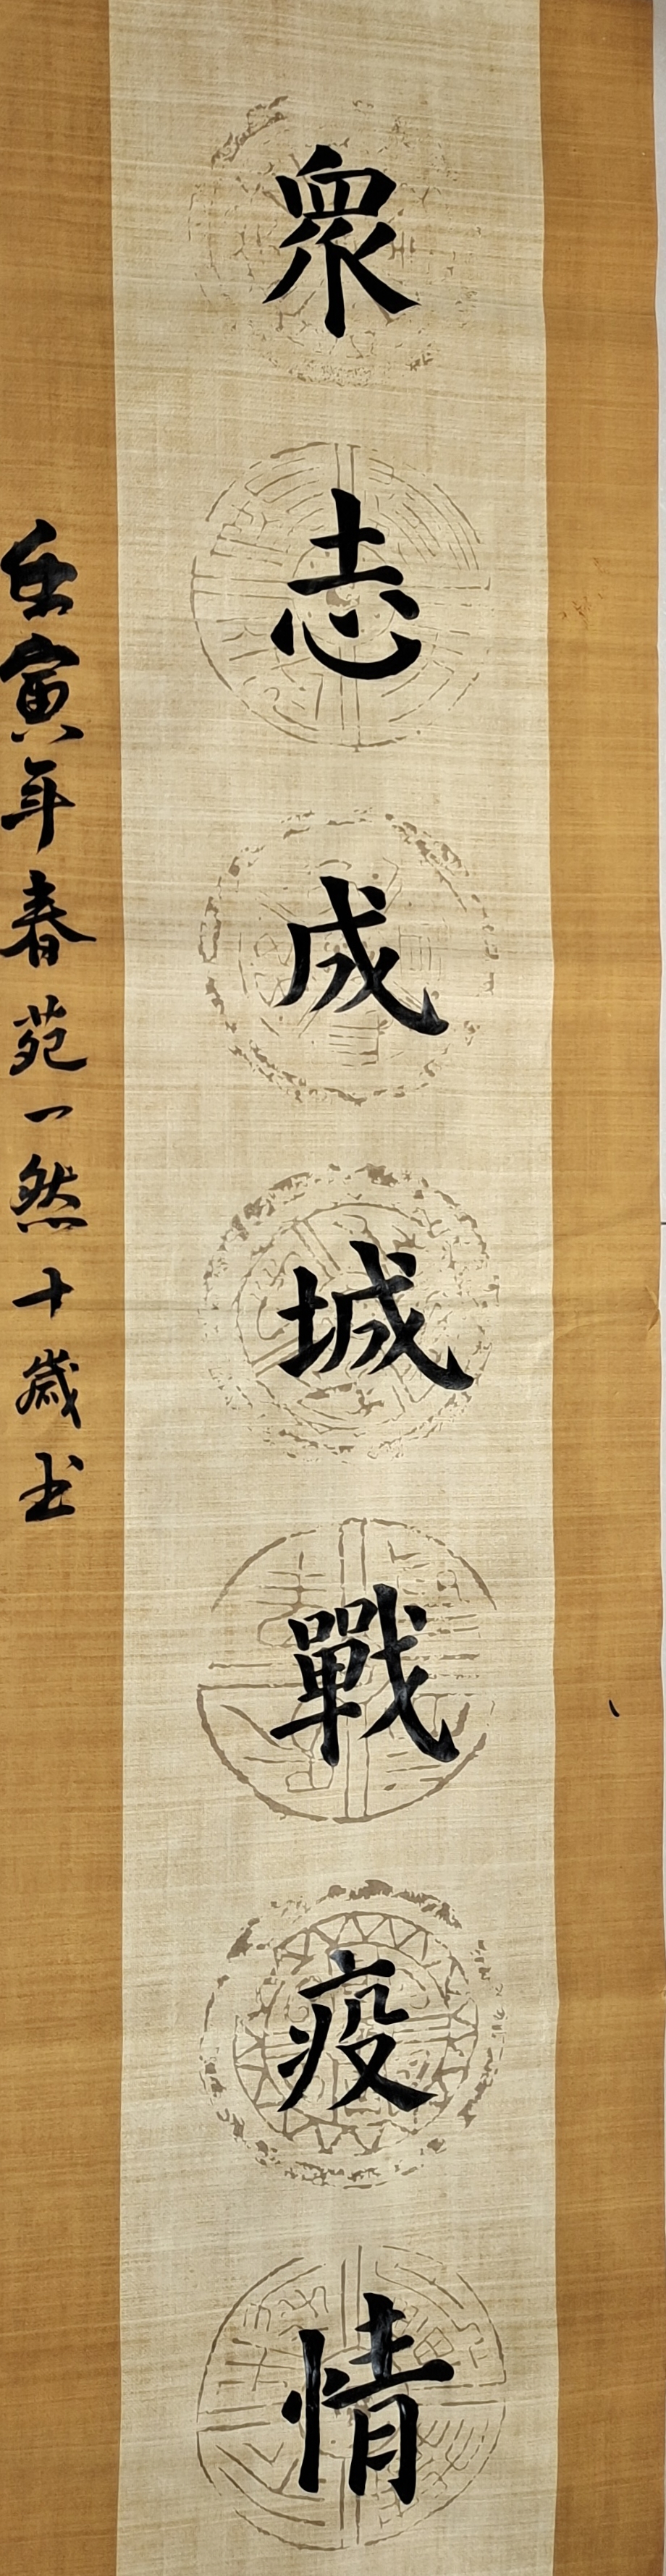 眾志成城戰疫情
壬寅年春苑一然十歲书